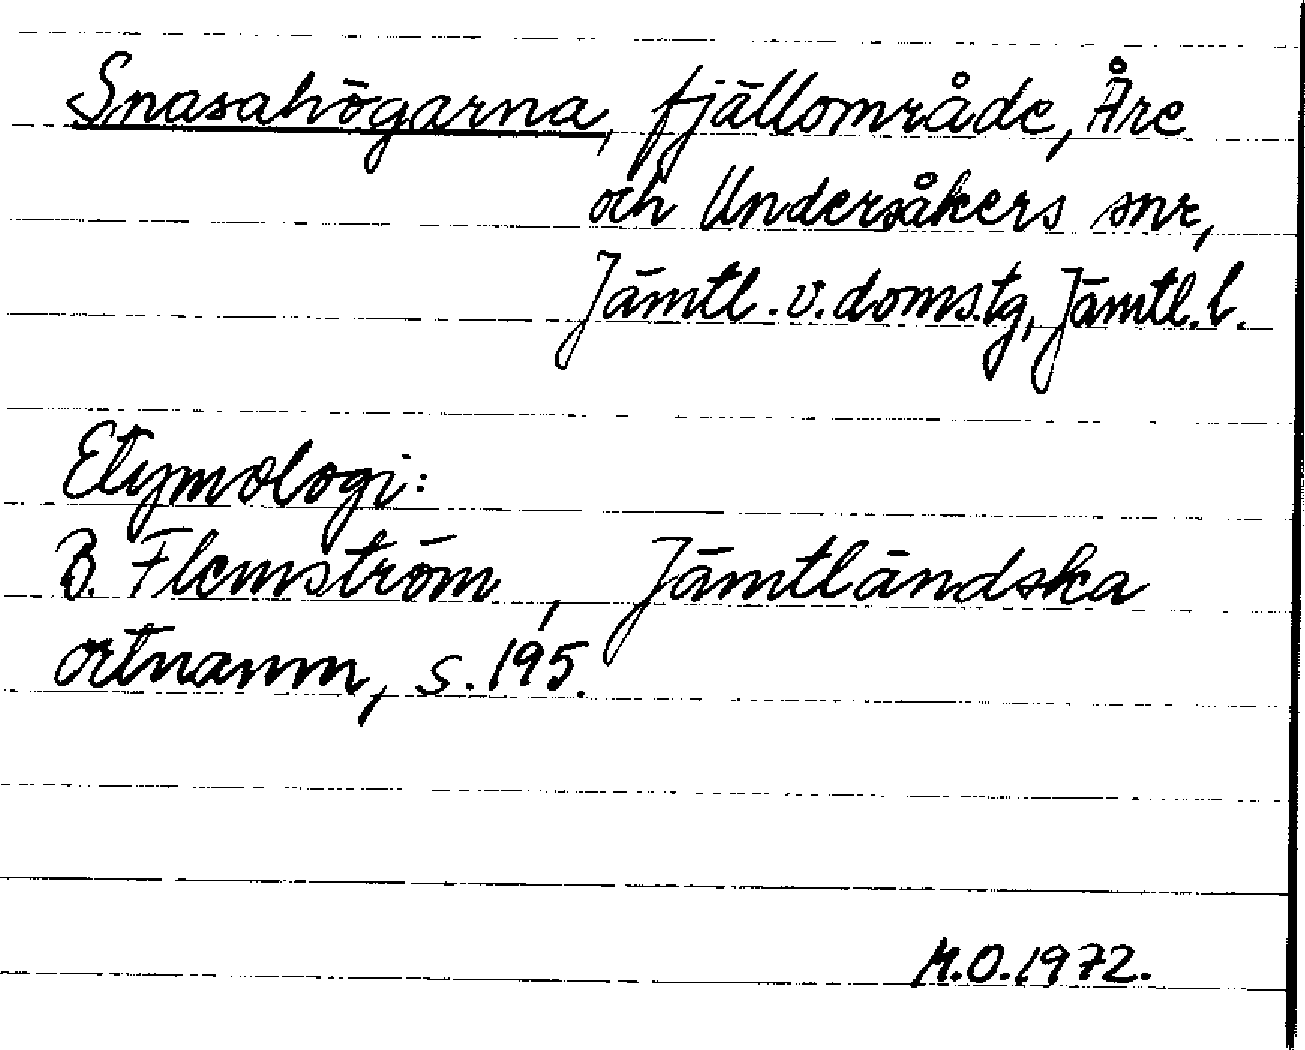 Snasahögarna, fjällområde, Åre
och Undersåkers snr,
Jämtl. v. doms.tg, Jämtl. l.
Etymologi:
B. Flemström, Jämtländska
ortnamn, s. 195.
M.O. 1972.